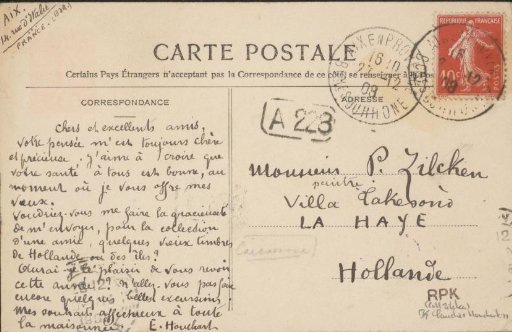 AIX.
14, rue d'Italie
FRANCE. (B.d.R.)
CARTE POSTALE
Certains Pays Étrangers n'acceptant pas la Correspondance de ce côté, se renseigner à la Pos
CORRESPONDANCE
ADRESSE
REPUBLIQUE FRANÇAISE
10
POSTES
AIX-EN-PRO
12
09
BCHES DU RHONE
A 223
Chers et excellents amis,
Votre pensée m'est toujours chère
et précieuse. J'aime à croire que
votre santé à tous est bonne, au
moment où je vous offre mes
vœux.
Voudriez-vous me faire la gracieuseté
de m'envoyer, pour la collection
d'une amie, quelques vieux timbres
de Hollande ou des îles?
Aurai-je le plaisir de vous revoir
cette année? N'allez-vous pas faire
encore quelques belles excursions
Mes souhaits affectueux à toute
la maisonnée. E. Houchart
Monsieur P. Zilcken
peintre
Villa Takesono
LA HAYE
Hollande
RPK